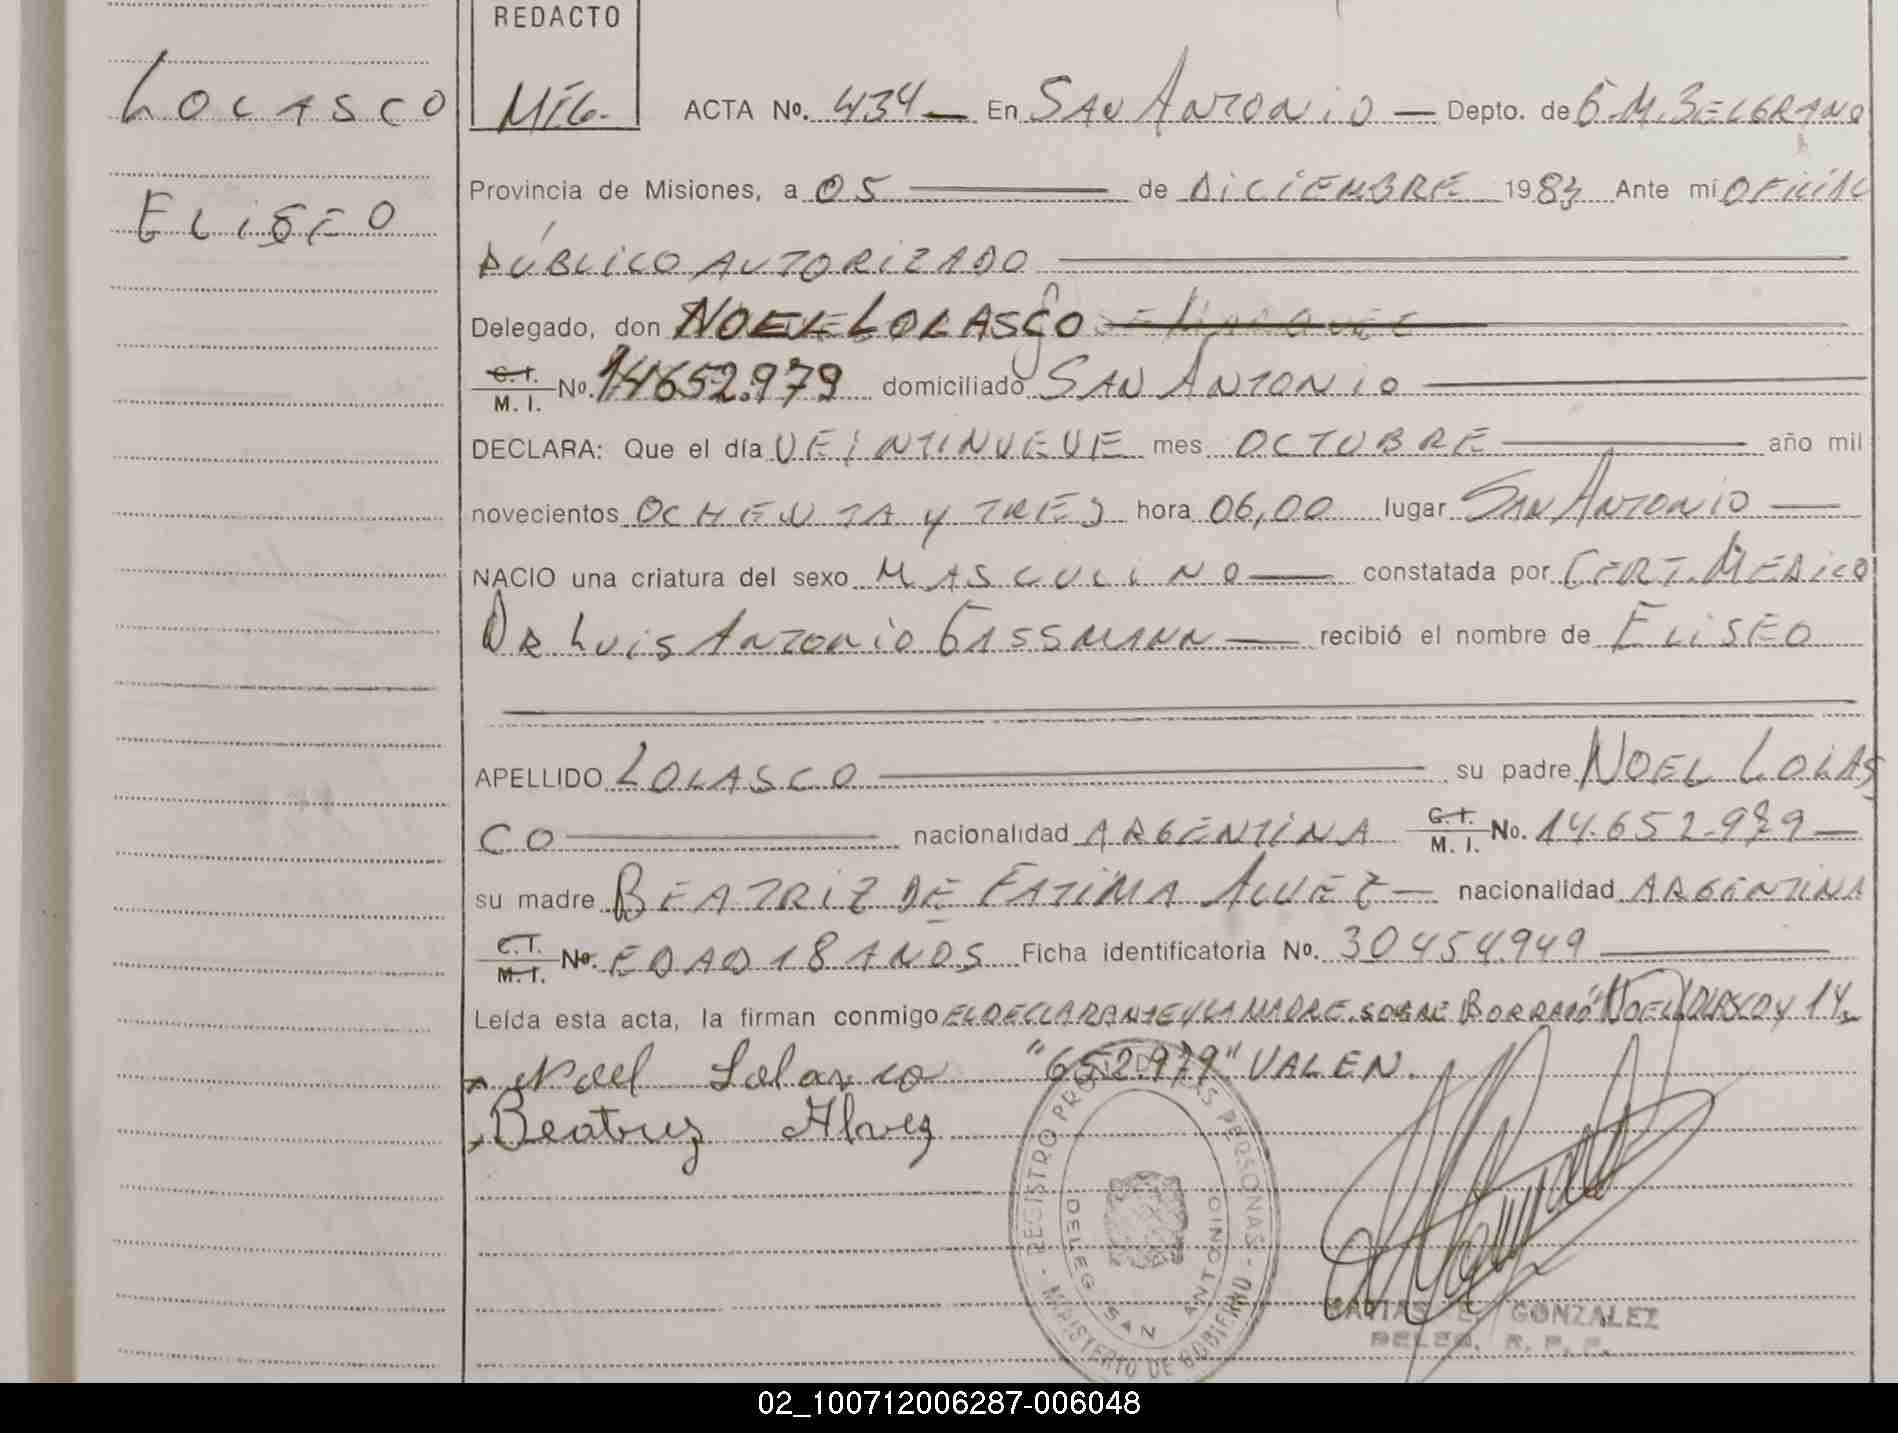 REDACTO
LOLASCO
MEG.
ACTA No. 434 — En SAN ANTONIO — Depto. de G.M.BELGRANO
ELISEO
Provincia de Misiones, a 05 de DICIEMBRE 1983 Ante mí OFICIAL
PÚBLICO AUTORIZADO
Delegado, don NOEL LOLASCO
C.I. M. I. No. 14652.979 domiciliado SAN ANTONIO
DECLARA: Que el día VEINTINUEVE mes OCTUBRE año mil
novecientos OCHENTA Y TRES hora 06,00 lugar SAN ANTONIO —
NACIO una criatura del sexo MASCULINO — constatada por CERT. MEDICO
DR LUIS ANTONIO GASSMANN — recibió el nombre de ELISEO
APELLIDO LOLASCO su padre NOEL LOLAS
CO nacionalidad ARGENTINA C.I. M. I. No. 14.652.979 —
su madre BEATRIZ DE FATIMA ALVEZ — nacionalidad ARGENTINA
C.I. M.I. No. EDAD 18 AÑOS Ficha identificatoria No. 30454949
Leída esta acta, la firman conmigo EL DECLARANTE Y LA MADRE. SOBRE BORRADO "NOEL LOLASCO Y 14.
Noel Lolasco "652.979" VALEN.
Beatriz Alvez
REGISTRO PROV. DE LAS PERSONAS
DELEG. SAN ANTONIO
MINISTERIO DE GOBIERNO
MATIAS E. GONZALEZ
DELEG. R. P. P.
02_100712006287-006048